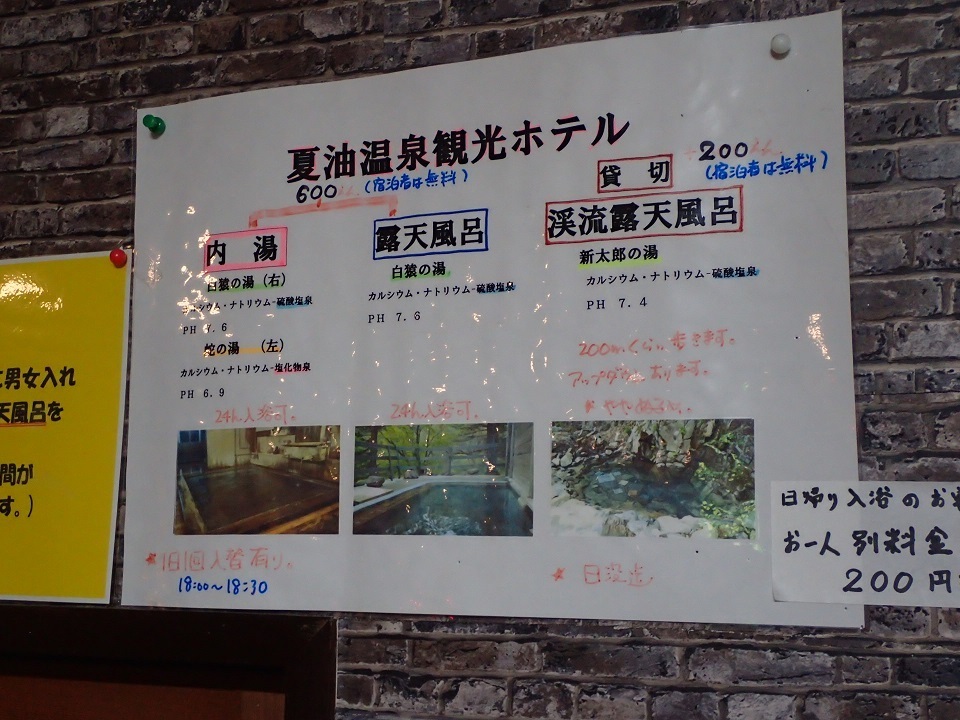 夏油温泉観光ホテル
600
(宿泊者は無料)
貸切
200
(宿泊者は無料)
内湯
白猿の湯 (右)
カルシウム・ナトリウム-硫酸塩泉
PH 7.6
蛇の湯 (左)
カルシウム・ナトリウム-塩化物泉
PH 6.9
24h入浴可。
露天風呂
白猿の湯
カルシウム・ナトリウム-硫酸塩泉
PH 7.6
24h入浴可。
渓流露天風呂
新太郎の湯
カルシウム・ナトリウム-硫酸塩泉
PH 7.4
200mくらい歩きます。
アップダウンあります。
* ややぬるめ。
* 1日1回入替有り。
18:00〜18:30
* 日没迄
に男女入れ
天風呂を
間が
す。)
日帰り入浴のお客
お一人 別料金
200円